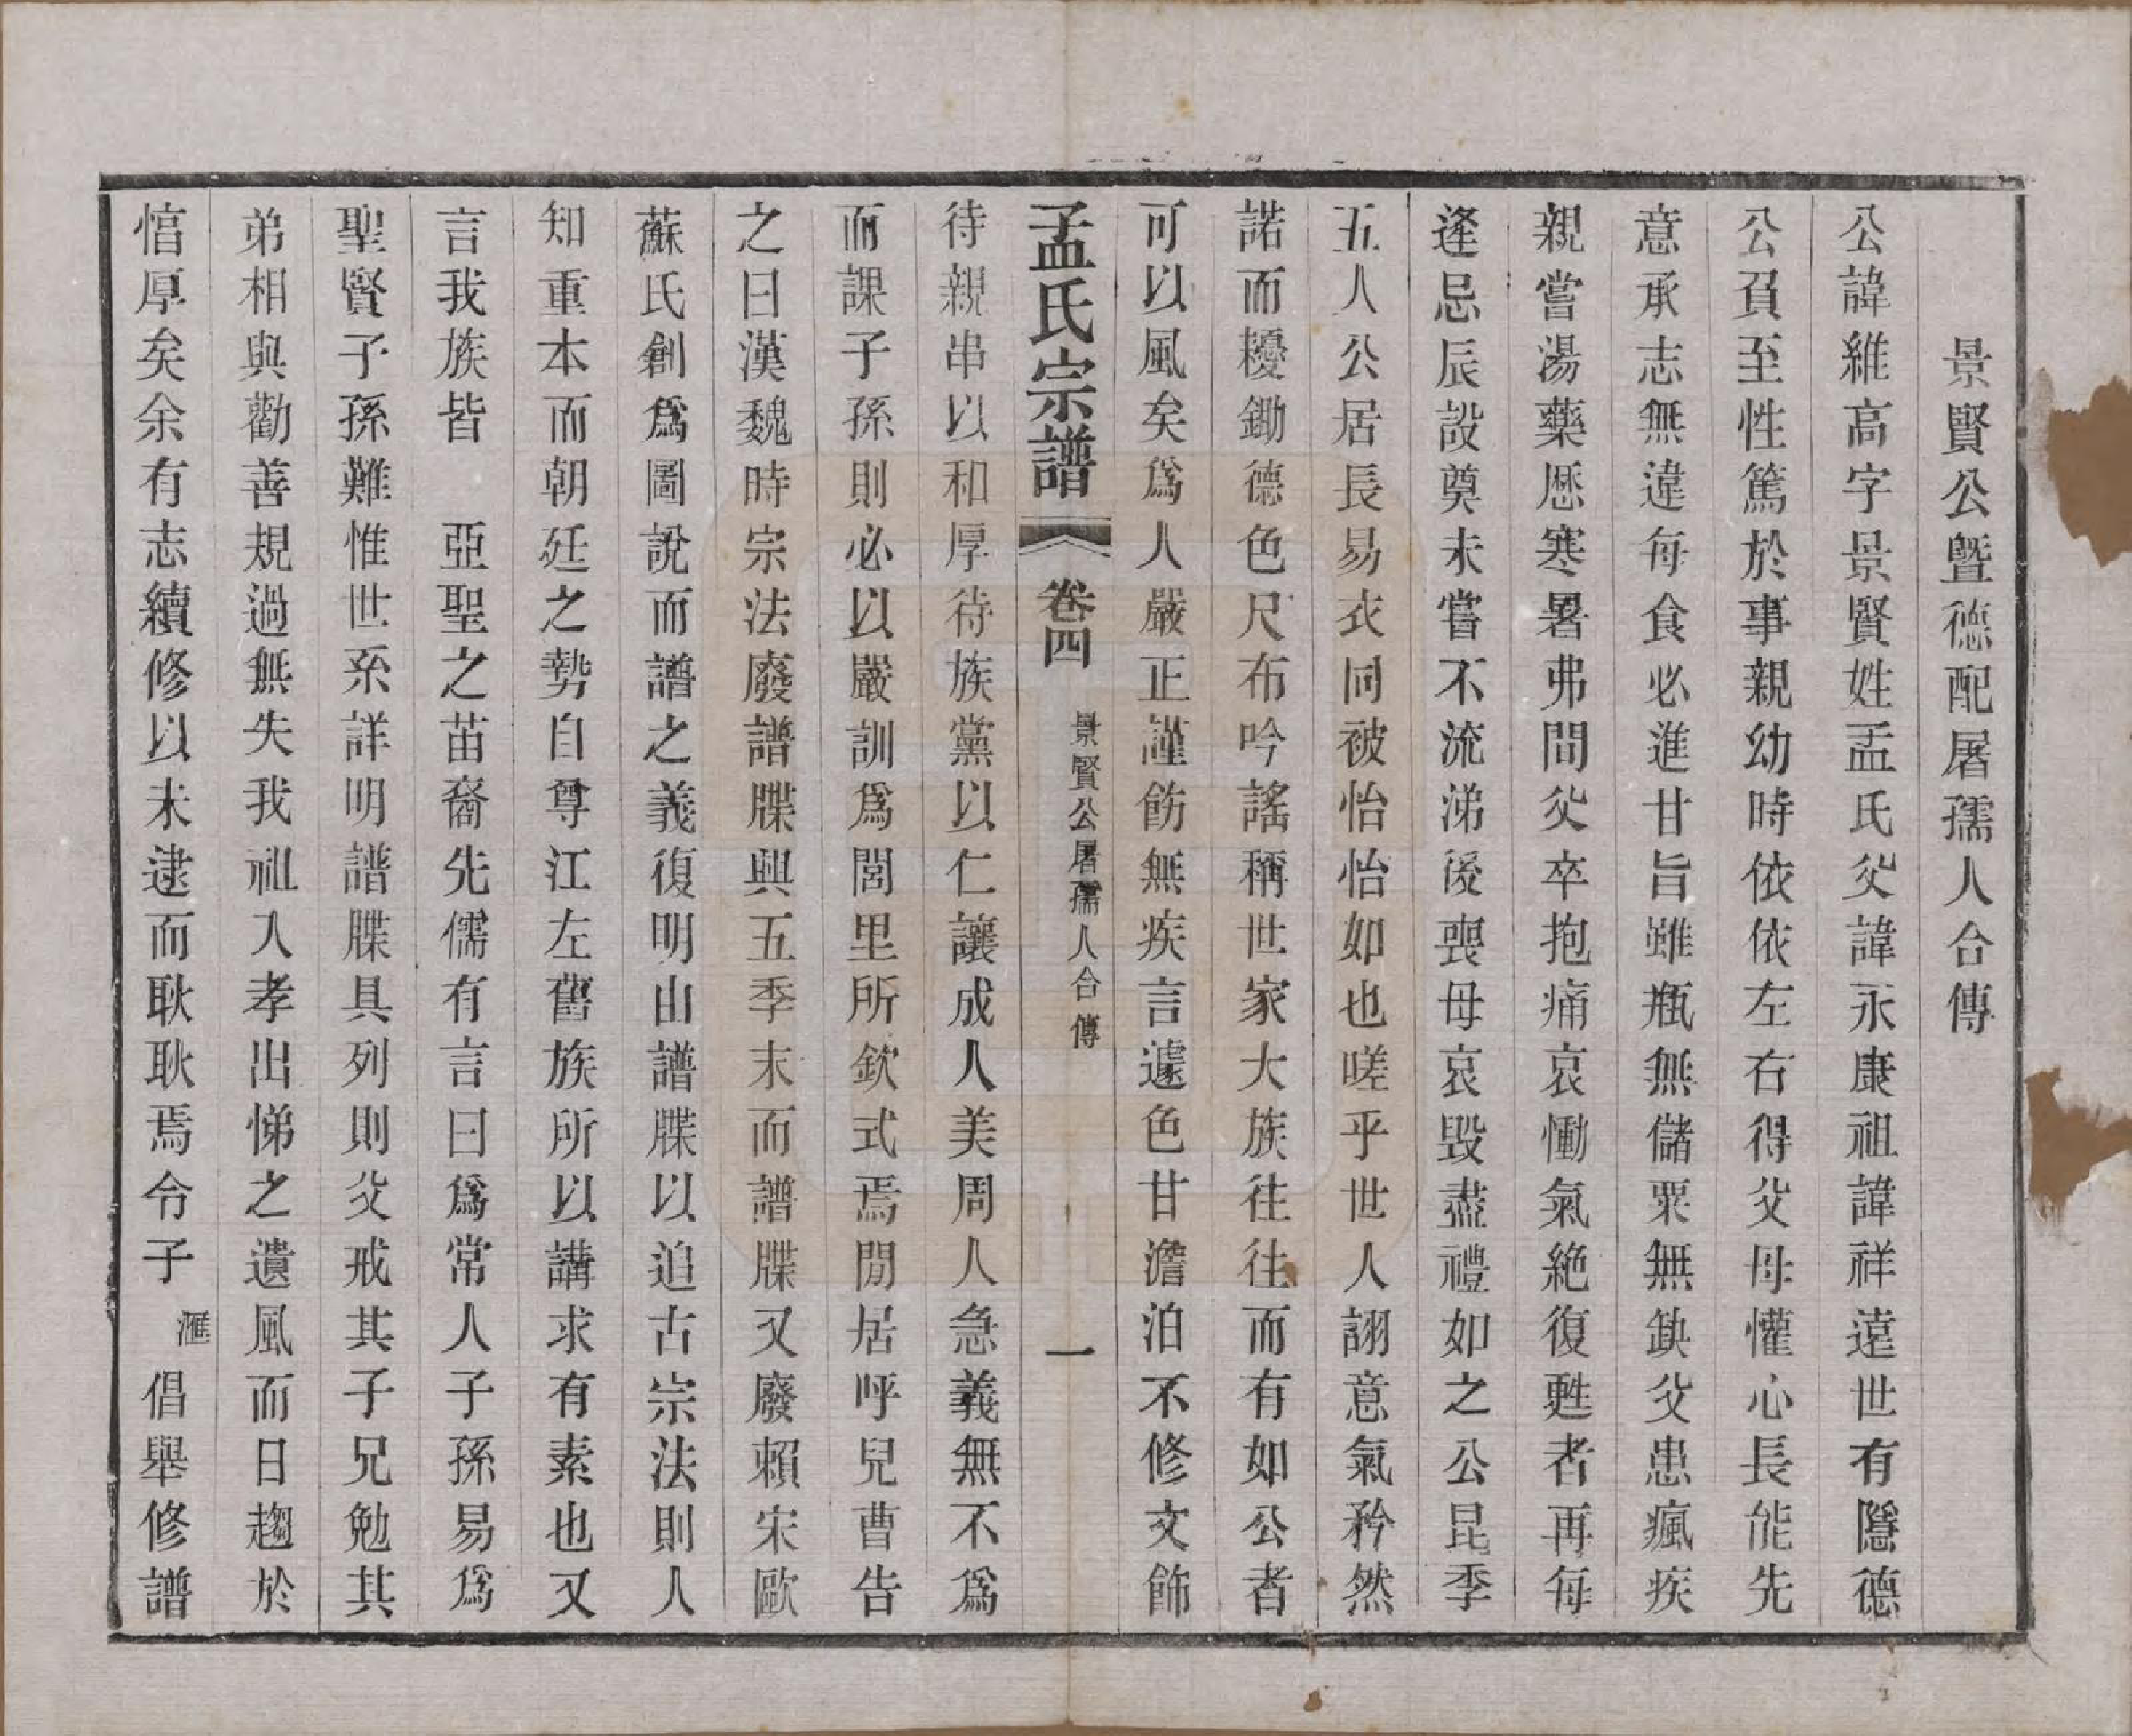 景賢公曁德配屠孺人合傳
公諱維高字景賢姓孟氏父諱永康祖諱祥遠世有隱德
公負至性篤於事親幼時依依左右得父母懽心長能先
意承志無違每食必進甘旨雖瓶無儲粟無缺父患瘋疾
親嘗湯藥歷寒暑弗間父卒抱痛哀慟氣絶復甦者再每
逢忌辰設奠未嘗不流涕後喪母哀毀盡禮如之公昆季
五人公居長易衣同被怡怡如也嗟乎世人詡意氣矜然
諾而耰鋤德色尺布吟謠稱世家大族往往而有如公者
可以風矣爲人嚴正謹飭無疾言遽色甘澹泊不修文飾
孟氏宗譜 卷四 景賢公屠孺人合傳 一
待親串以和厚待族黨以仁讓成人美周人急義無不爲
而課子孫則必以嚴訓爲閭里所欽式焉閒居呼兒曹告
之曰漢魏時宗法廢譜牒興五季末而譜牒又廢賴宋歐
蘇氏創爲圖說而譜之義復明由譜牒以追古宗法則人
知重本而朝廷之勢自尊江左舊族所以講求有素也又
言我族皆 亞聖之苗裔先儒有言曰爲常人子孫易爲
聖賢子孫難惟世系詳明譜牒具列則父戒其子兄勉其
弟相與勸善規過無失我祖入孝出悌之遺風而日趨於
愔厚矣余有志續修以未逮而耿耿焉令子滙倡舉修譜